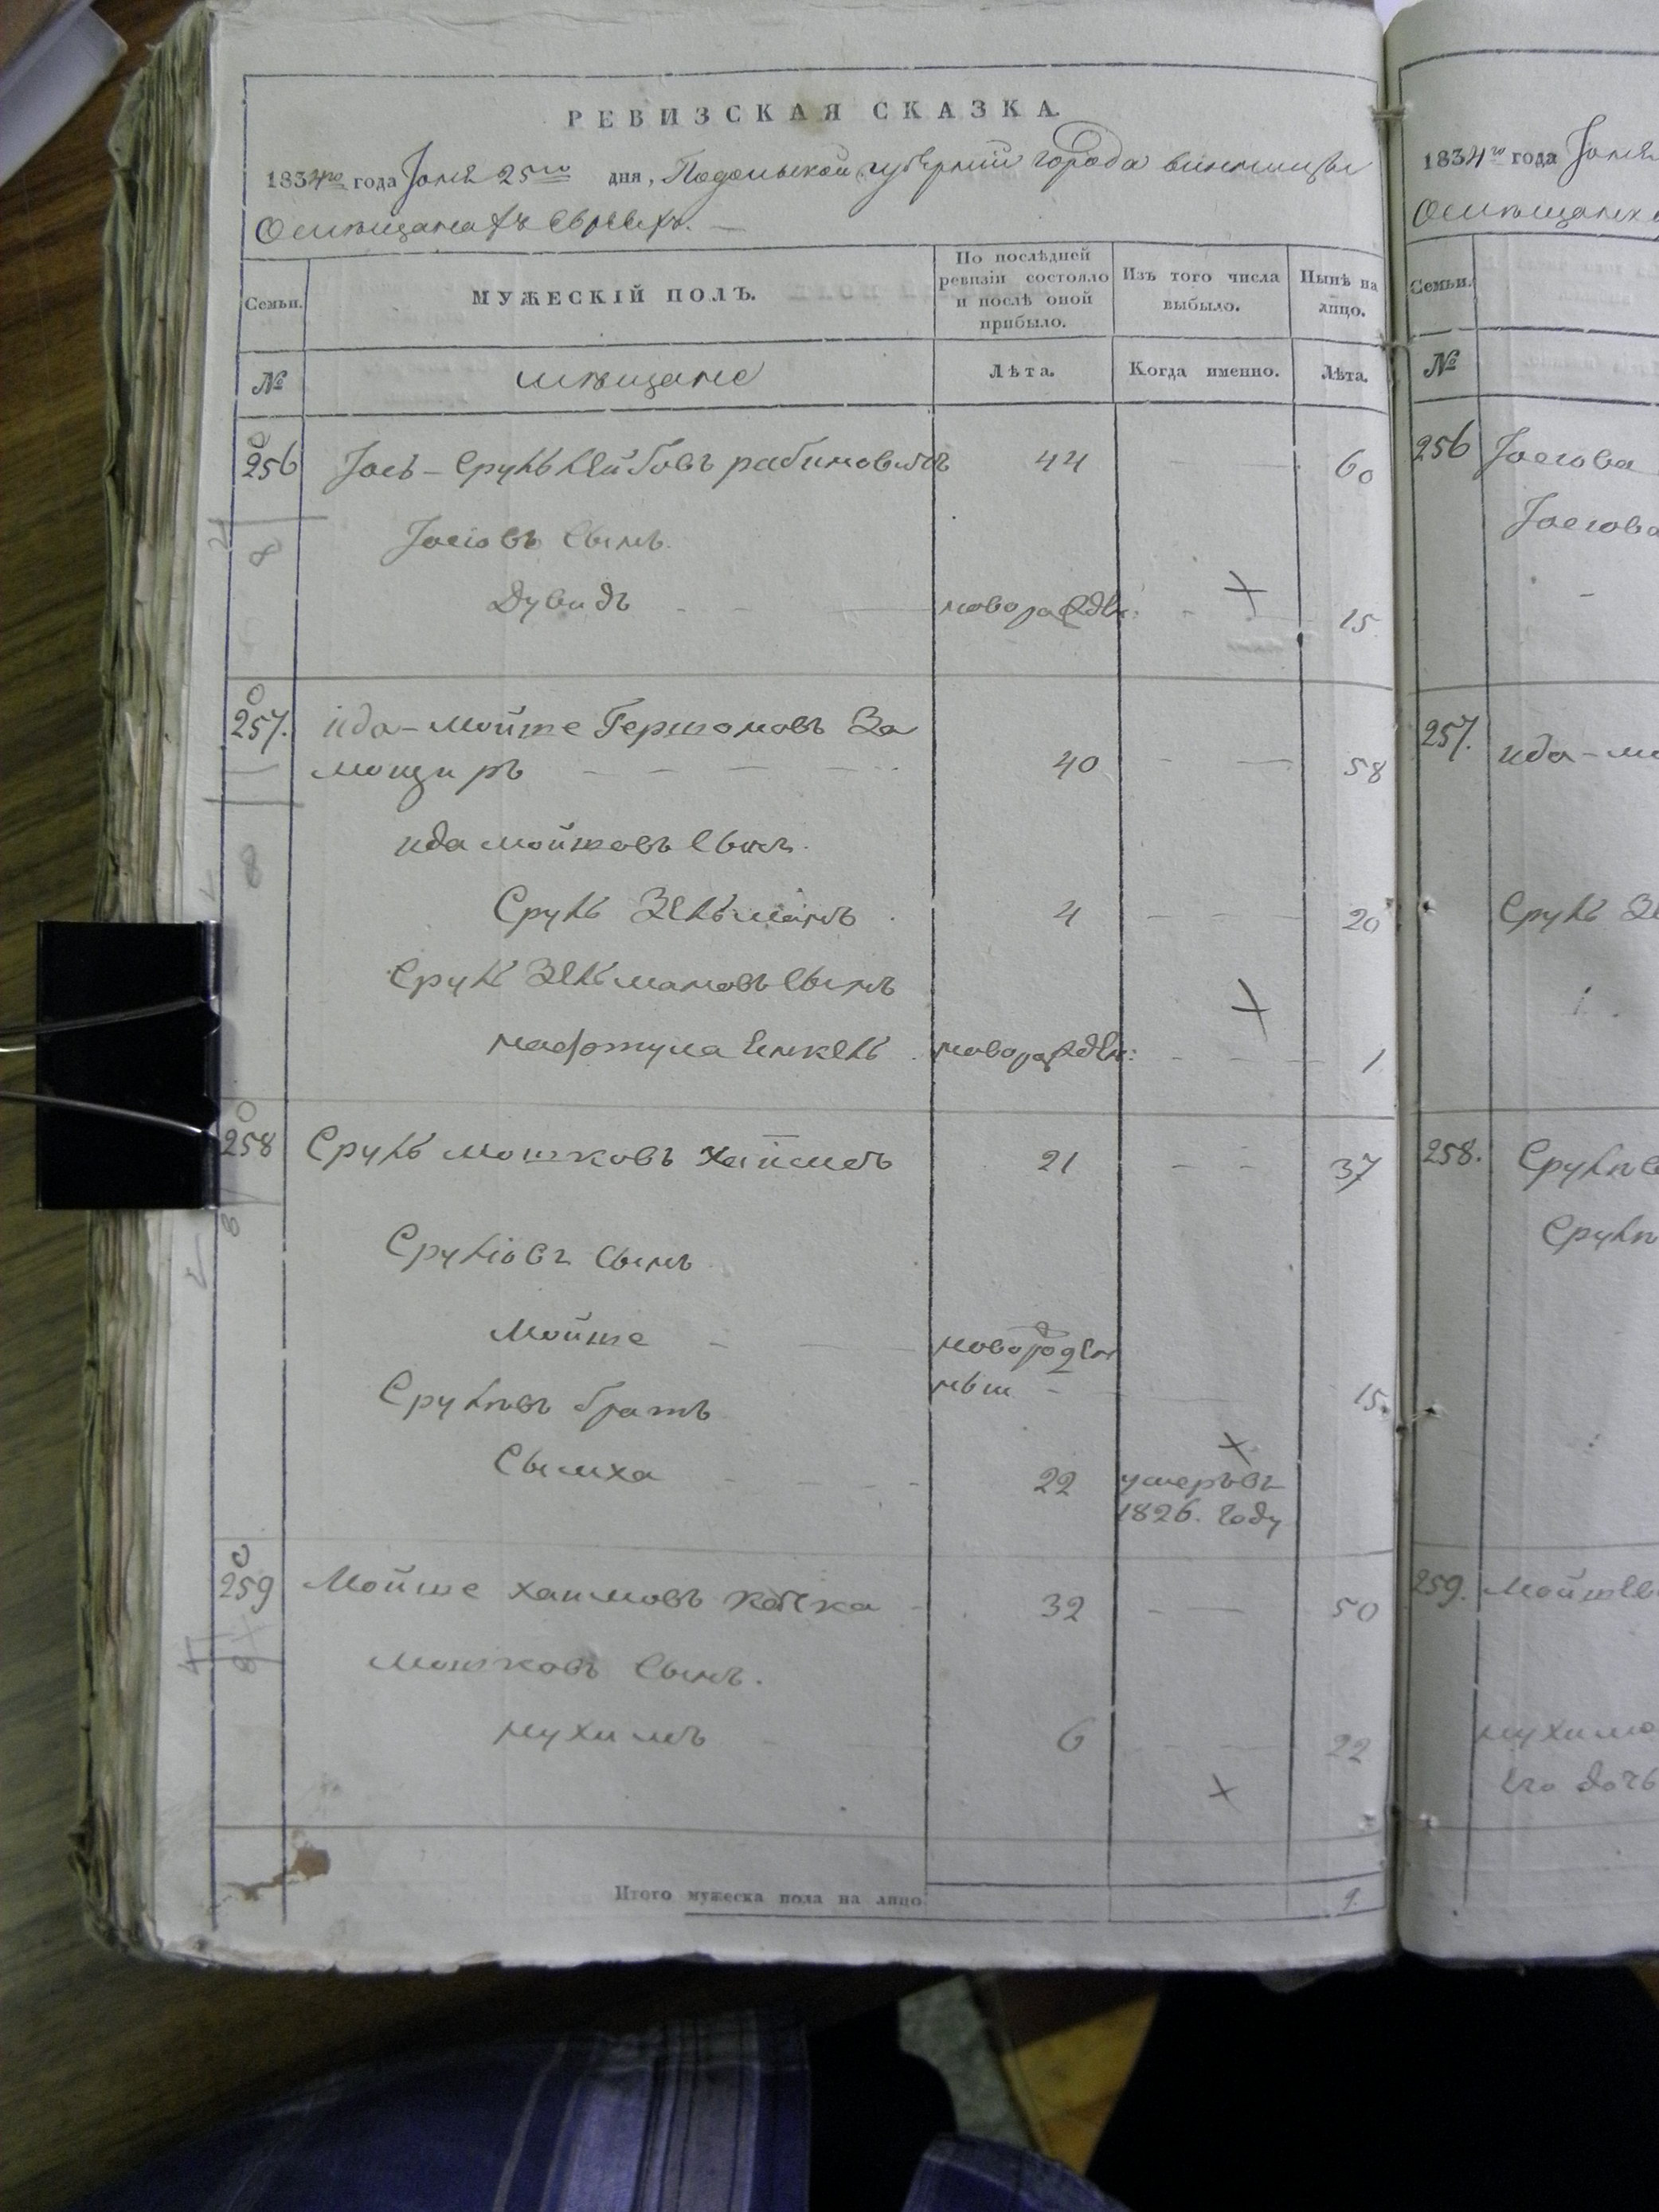 РЕВИЗСКАЯ СКАЗКА.
1834го года Іюня 25го дня, Подольской губерніи города винницы
О мѣщанахъ евреехъ.
Семьи.
МУЖЕСКІЙ ПОЛЪ.
По послѣдней ревизіи состояло и послѣ оной прибыло.
Изъ того числа выбыло.
Нынѣ на лицо.
№
мѣщане
Лѣта.
Когда именно.
Лѣта.
256 Іось-Сруль Лейбовъ рабиновичъ 44 60
Іосіовъ Сынъ
Дувидъ новорожден: 15
257. ида-Мойше Гершоновъ За
мощиръ 40 58
ида мойшовъ Сынъ.
Сруль Зельманъ 4 20
Сруль Зельмановъ Сынъ
нафтула новорожден: 1
258 Сруль мошковъ 21 37
Срулiовъ Сынъ
Мойше новорожден
ный 15
Сруліовъ братъ
Сымха 22 умеръ въ
1826. году
259 Мойше хаимовъ 32 50
Мошковъ Сынъ.
нухимъ 6 22
Итого мужеска пола на лицо 9.
1834го года Іюня
О мѣщанехъ
Семьи.
№
256 Іосіова
Іосіова
257. ида-мо
Сруль Зе
258.
259.
нухимо
Его дочь